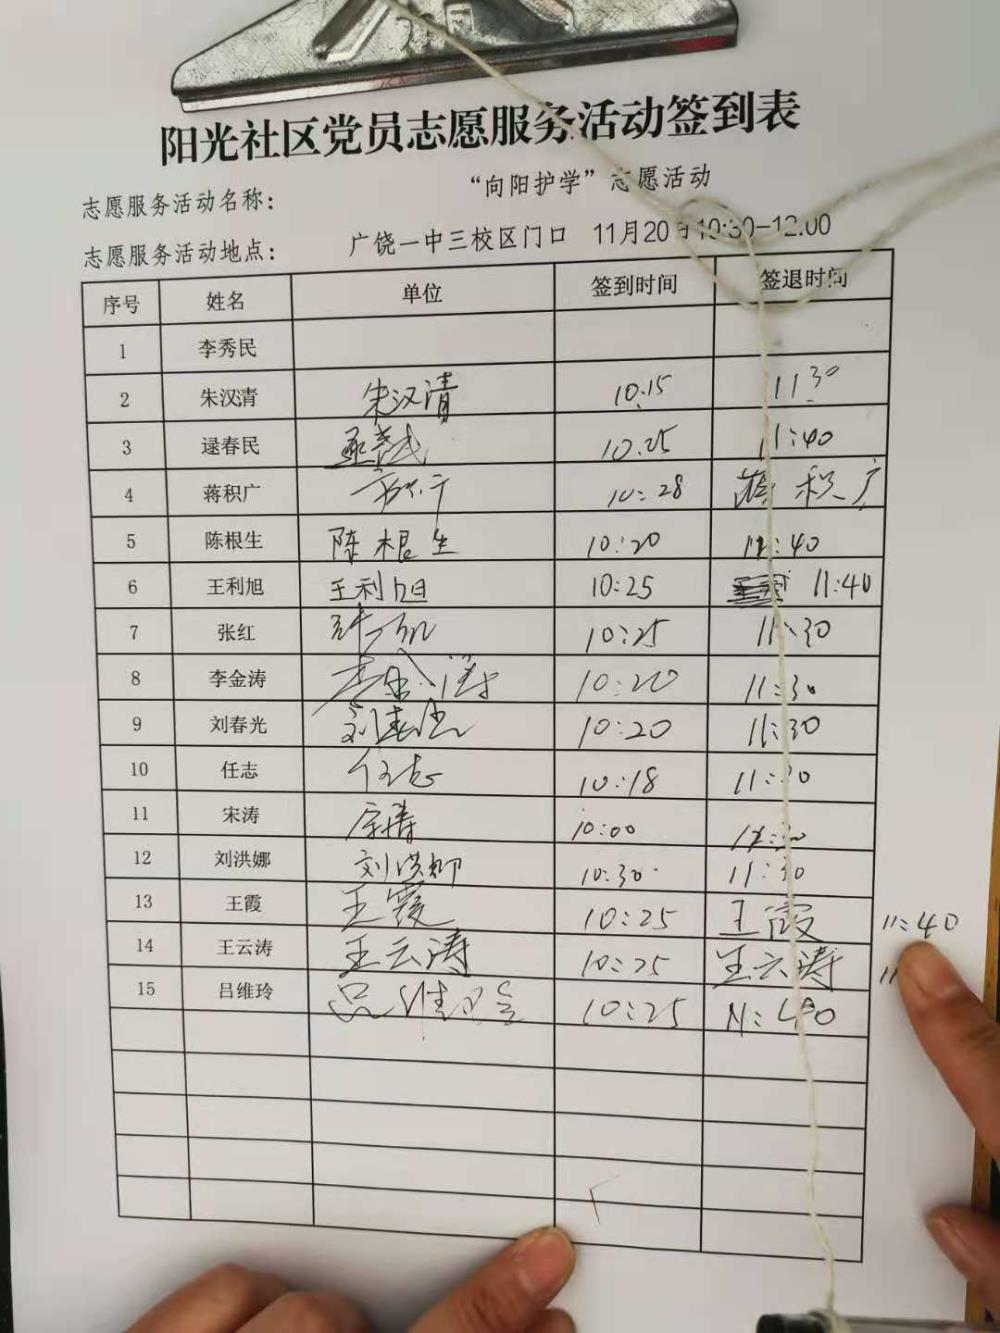 阳光社区党员志愿服务活动签到表
志愿服务活动名称： “向阳护学”志愿活动
志愿服务活动地点： 广饶一中三校区门口 11月20日10:30-12:00
序号 姓名 单位 签到时间 签退时间
1 李秀民
2 朱汉清 朱汉清 10:15 11:30
3 逯春民 10:25 11:40
4 蒋积广 10:28 蒋积广
5 陈根生 陈根生 10:20 11:40
6 王利旭 王利旭 10:25 11:40
7 张红 10:25 11:30
8 李金涛 李金涛 10:20 11:30
9 刘春光 刘春光 10:20 11:30
10 任志 任志 10:18 11:30
11 宋涛 宋涛 10:00 11:30
12 刘洪娜 刘洪娜 10:30 11:30
13 王霞 王霞 10:25 王霞 11:40
14 王云涛 王云涛 10:25 王云涛 11
15 吕维玲 吕维玲 10:25 11:40